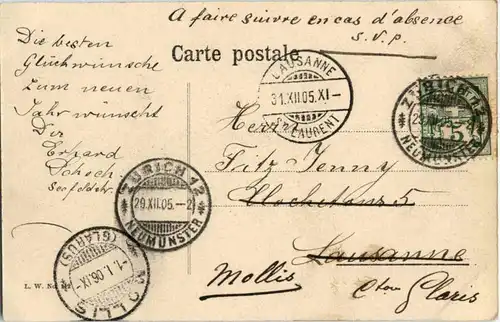 A faire suivre en cas d'absence
s.v.p.
Carte postale.
Die besten
Glückwünsche
zum neuen
Jahr wünscht
Dir
Erhard
Schoch
Seefeldstr.
LAUSANNE
31.XII.05.XI-
ST LAURENT
ZÜRICH 12
29.XII.05.
NEUMÜNSTER
5
Herrn
Fritz Jenny
5
Lausanne
Mollis
Cton Glaris
ZÜRICH 12
29.XII.05.-2
NEUMÜNSTER
MOLLIS
-1.I.06.IX-
(GLARUS)
L. W. No.